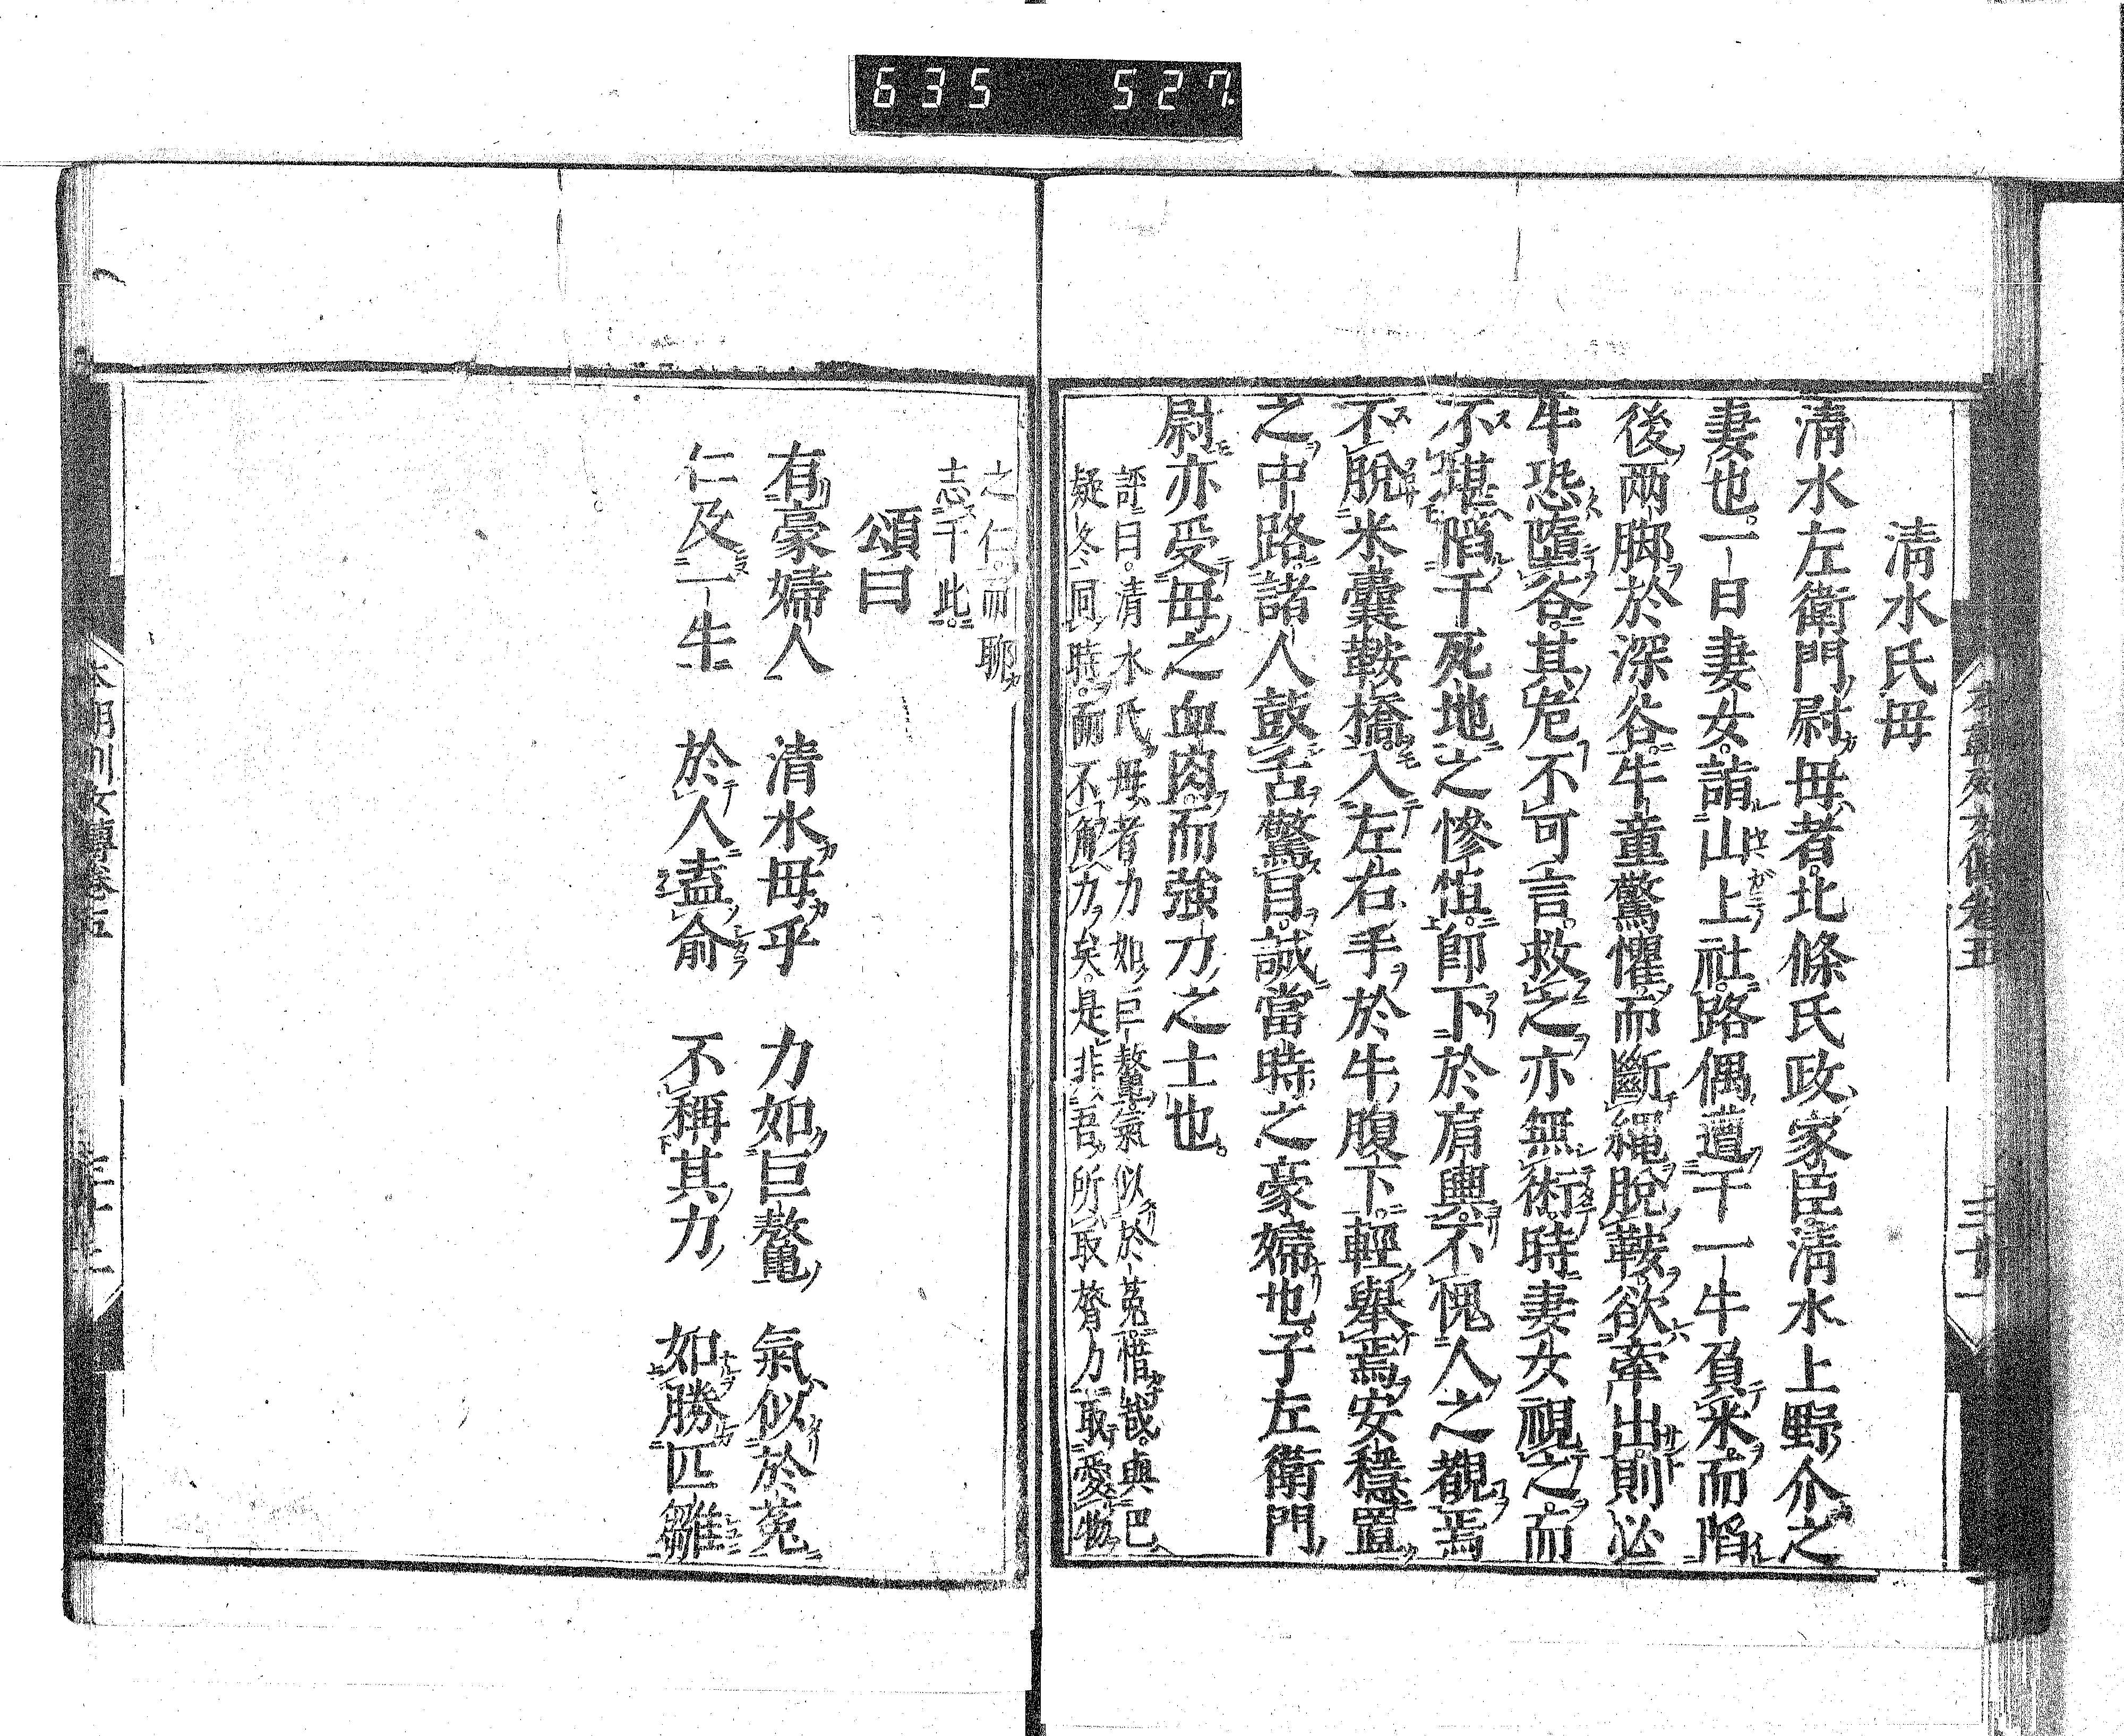 635 527.
清水氏毋
清水左衛門尉毋者。北條氏政家臣。清水上野介之
妻也。一日妻女。詣山上社。路偶遭于一牛負米而陷
後両脚於深谷。牛童驚懼而斷繩脫鞍欲牽出則必
牛恐墮谷。其危不可言。救之亦無術。時妻女視之。而
不堪陷于死地之慘怛。卽下於肩輿。不愧人之觀焉
不脫米囊鞍橋。入左右手於牛腹下。輕舉焉。安穩置
之中路。諸人鼓舌驚目。誠當時之豪婦也。子左衛門
尉亦受毋之血肉。而強力之士也。
評曰。清水氏毋者力如巨鼇。氣似於菟。惜哉。與巴
疑冬同時。而不角力矣。是非吾所取膂力。取愛物
之仁。而聊
志于此。
頌曰
有豪婦人 清水毋乎 力如巨鼇 氣似於菟
仁及一牛 於人盍俞 不稱其力 如勝匹雛
本朝列女傳卷五 三十一
本朝列女傳卷五 三十二